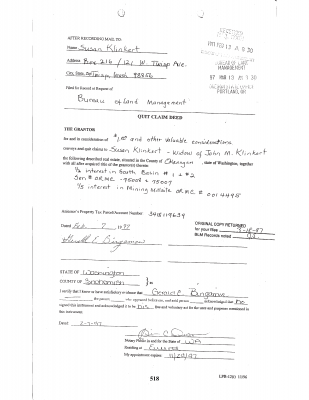 AFTER RECORDING MAIL TO:
Name Susan Klinkert
Address Box 216 / 121 W. Ave.
City, State, Zip Wash 98856
Filed for Record at Request of
Bureau of Land Management
1997 FEB 13 A 9:30
MANAGEMENT
97 MAR 13 A 9:30
PORTLAND, OR.
QUIT CLAIM DEED
THE GRANTOR
for and in consideration of $1.00 and other valuable considerations
conveys and quit claims to Susan Klinkert - widow of John M. Klinkert
the following described real estate, situated in the County of Okanogan, State of Washington, together
with all after acquired title of the grantor(s) therein:
1/3 interest in South Basin # 1 + # 2
Ser # ORMC - 75006 + 75007
1/3 interest in Mining ORMC # 0014495
Assessor's Property Tax Parcel/Account Number: 3418119639
ORIGINAL COPY RETURNED
for your files
BLM Records noted
Dated Feb. 7 1997
STATE OF Washington
COUNTY OF Snohomish } ss
I certify that I know or have satisfactory evidence that Gerald E. Bungarner
the person who appeared before me, and said person acknowledged that he
signed this instrument and acknowledged it to be his free and voluntary act for the uses and purposes mentioned in
this instrument.
Dated: 2-7-97
Notary Public in and for the State of WA
Residing at Everett
My appointment expires: 11/20/97
518
LPB-12(i) 11/96